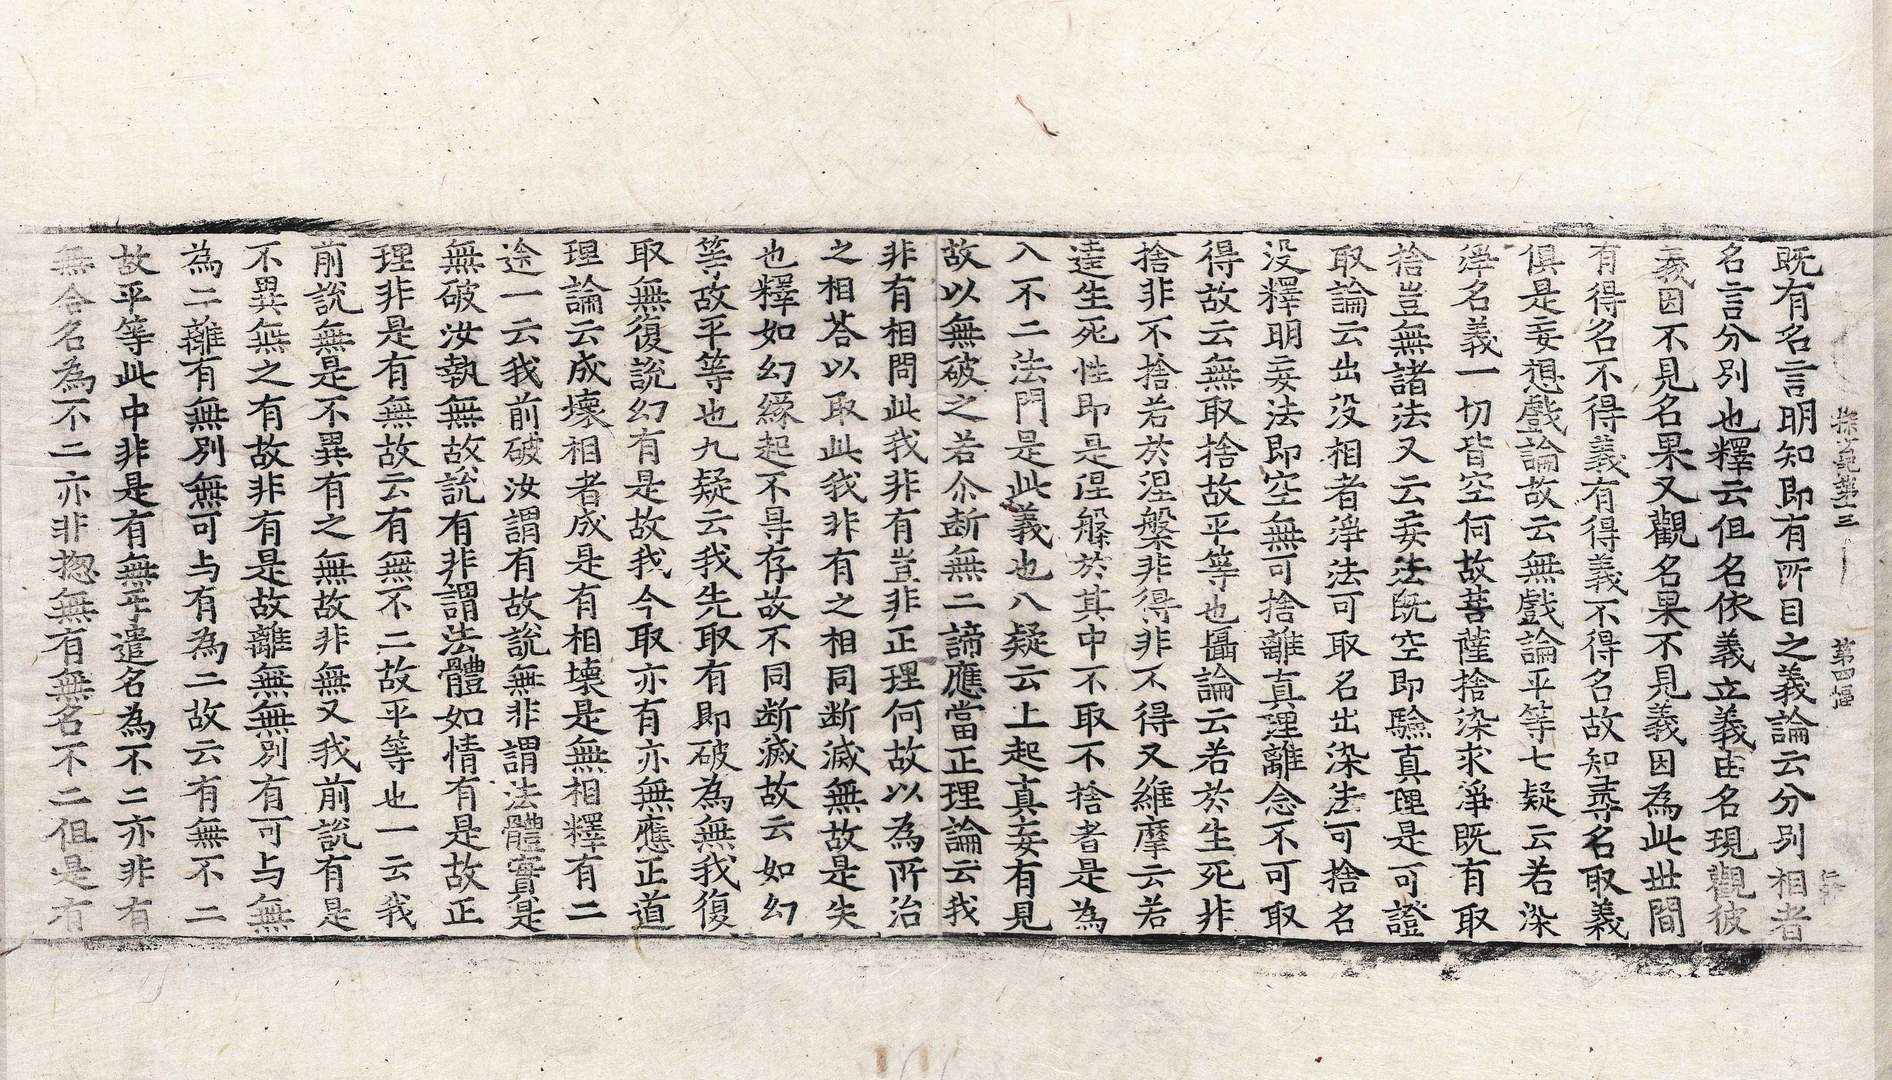 探玄記第十三　第四幅
既有名言明知即有所目之義論云分別相者
名言分別也釋云但名依義立義由名現觀彼
義因不見名果又觀名果不見義因為此世間
有得名不得義有得義不得名故知尋名取義
俱是妄想戲論故云無戲論平等七疑云若染
淨名義一切皆空何故菩薩捨染求淨既有取
捨豈無諸法又云妄法既空即驗真理是可證
取論云出沒相者淨法可取名出染法可捨名
沒釋明妄法即空無可捨離真理離念不可取
得故云無取捨故平等也攝論云若於生死非
捨非不捨若於涅槃非得非不得又維摩云若
達生死性即是涅槃於其中不取不捨者是為
入不二法門是此義也八疑云上起真妄有見
故以無破之若尒斷無二諦應當正理論云我
非有相問此我非有豈非正理何故以為所治
之相荅以取此我非有之相同斷滅無故是失
也釋如幻緣起不㝵存故不同斷滅故云如幻
等故平等也九疑云我先取有即破為無我復
取無復說幻有是故我今取亦有亦無應正道
理論云成壞相者成是有相壞是無相釋有二
途一云我前破汝謂有故說無非謂法體實是
無破汝執無故說有非謂法體如情有是故正
理非是有無故云有無不二故平等也一云我
前說無是不異有之無故非無又我前說有是
不異無之有故非有是故離無無別有可与無
為二離有無別無可与有為二故云有無不二
故平等此中非是有無平遣名為不二亦非有
無合名為不二亦非揔無有無名不二但是有